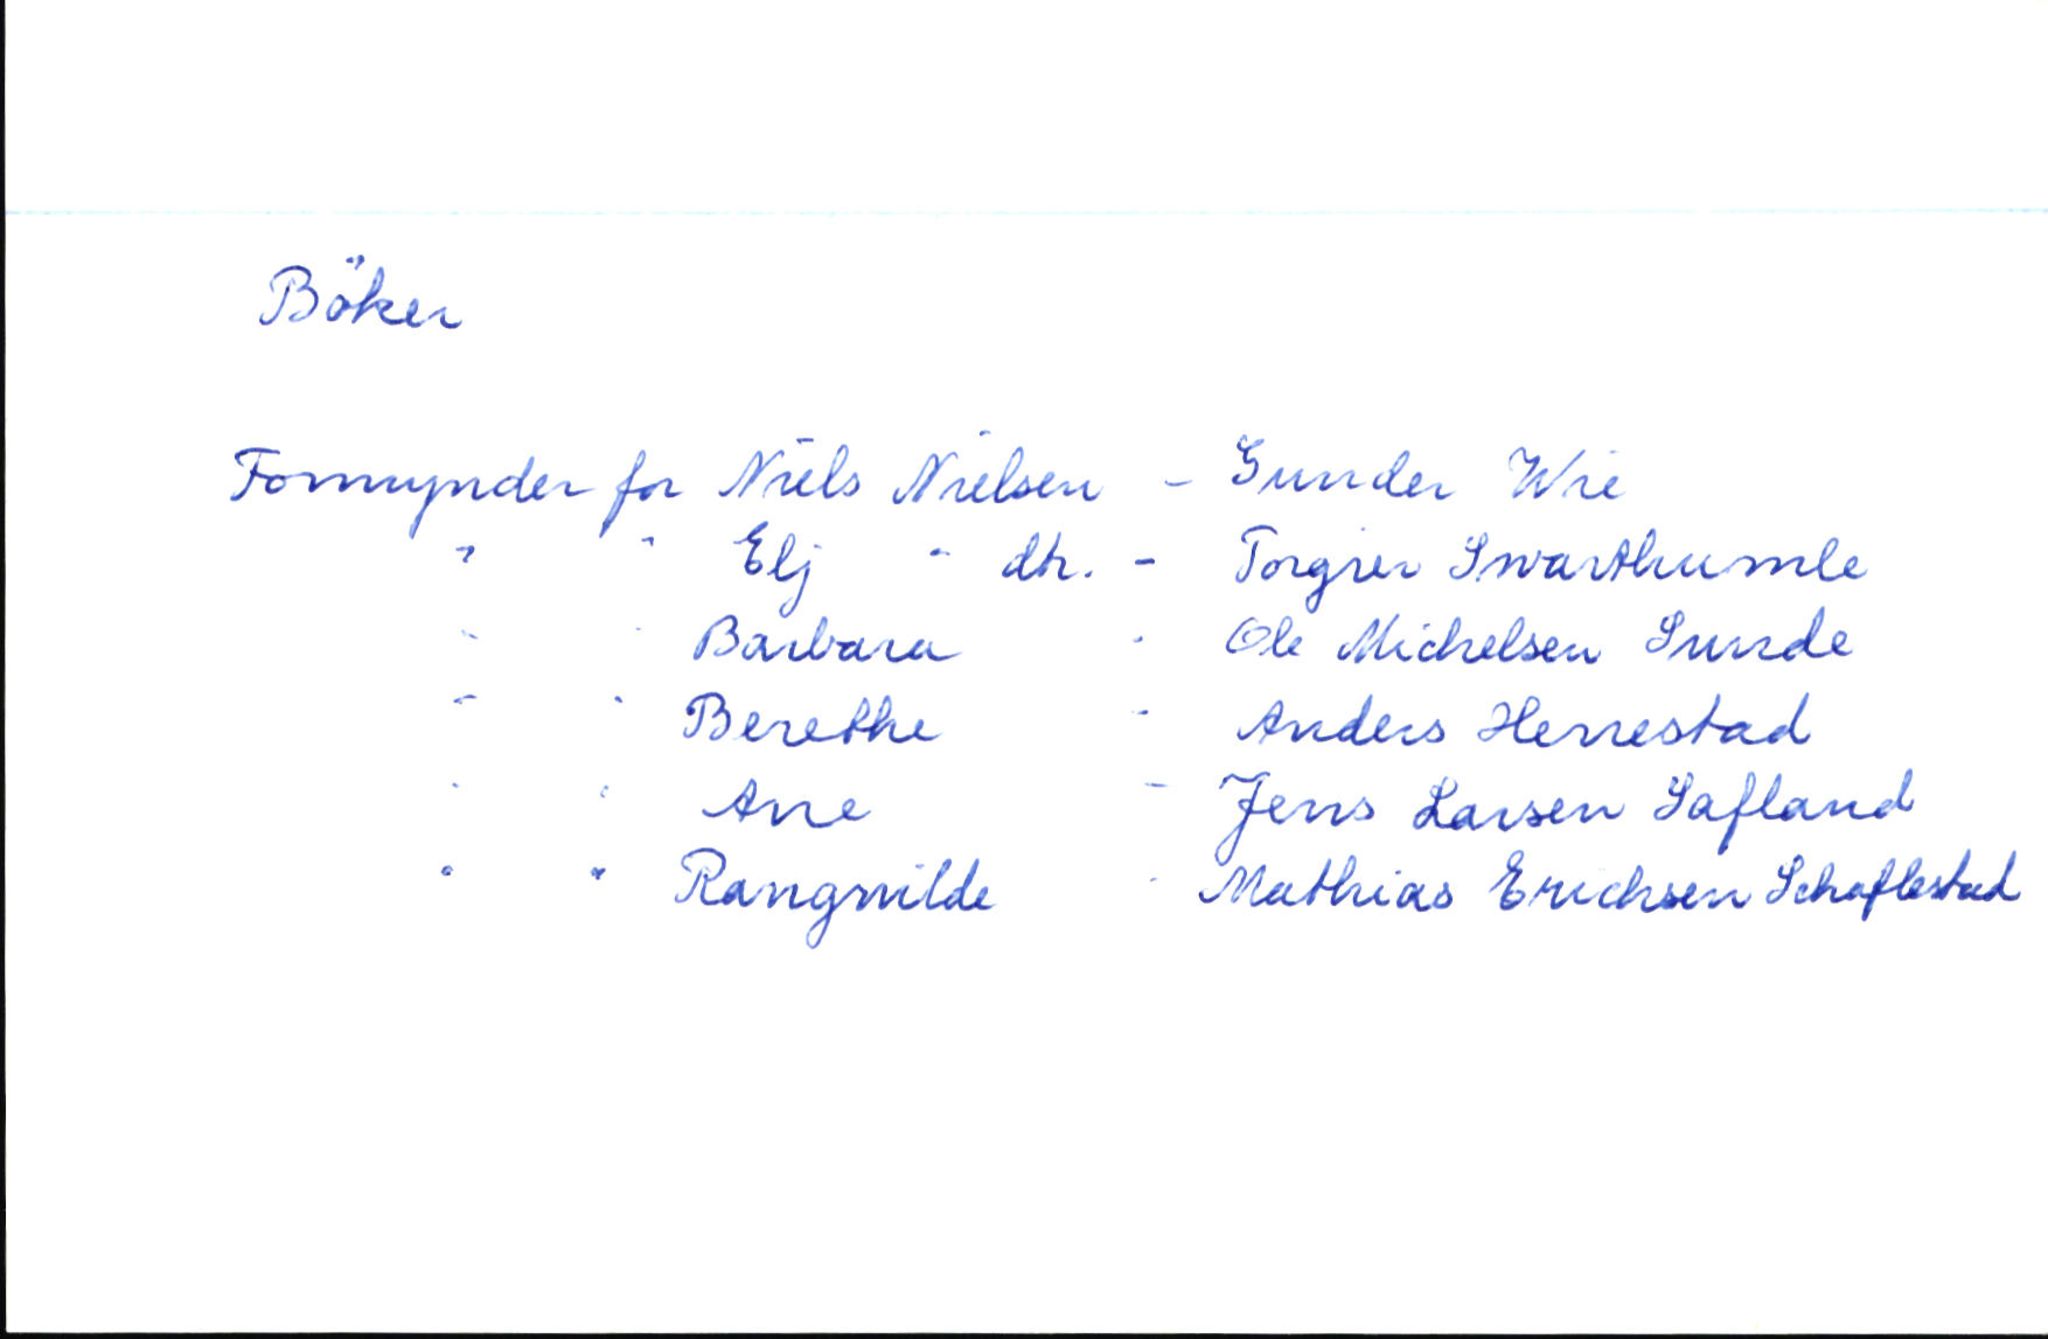 Böker
Formynder for Niels Nielsen - Gunder Wie
" " Elj " dtr. - Torgier Swarthumle
" " Barbara - Ole Michelsen Sunde
" " Berethe - Anders Herrestad
" " Ane - Jens Larsen Safland
" " Rangwilde - Mathias Erichsen Schaflestad